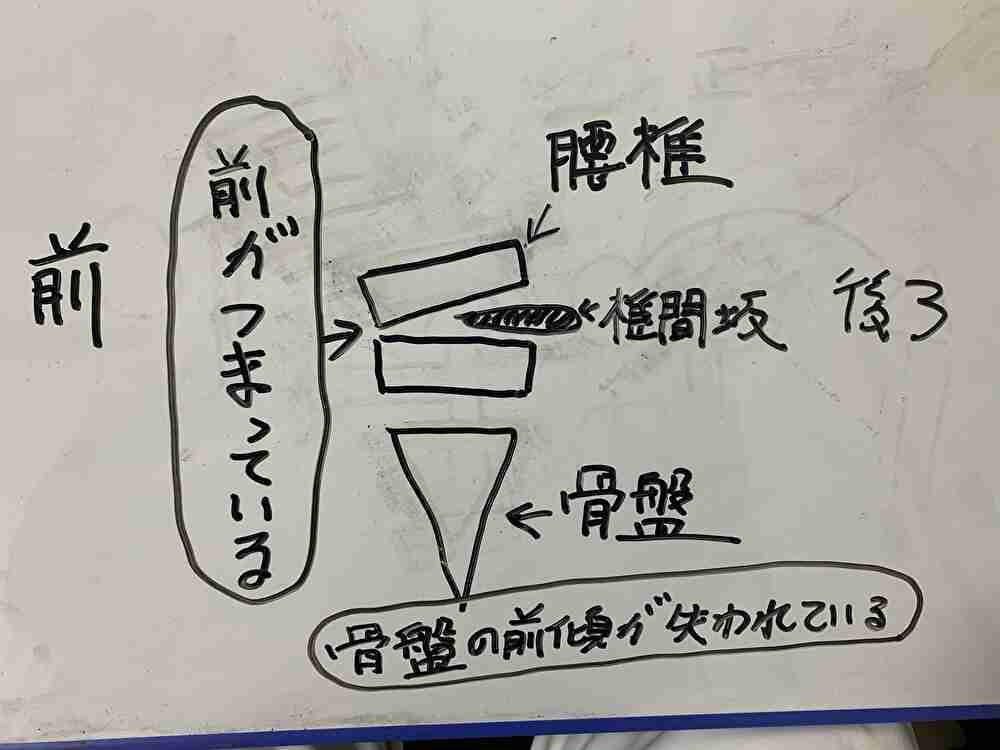 前
前がつまっている
腰椎
椎間板
後ろ
骨盤
骨盤の前傾が失われている